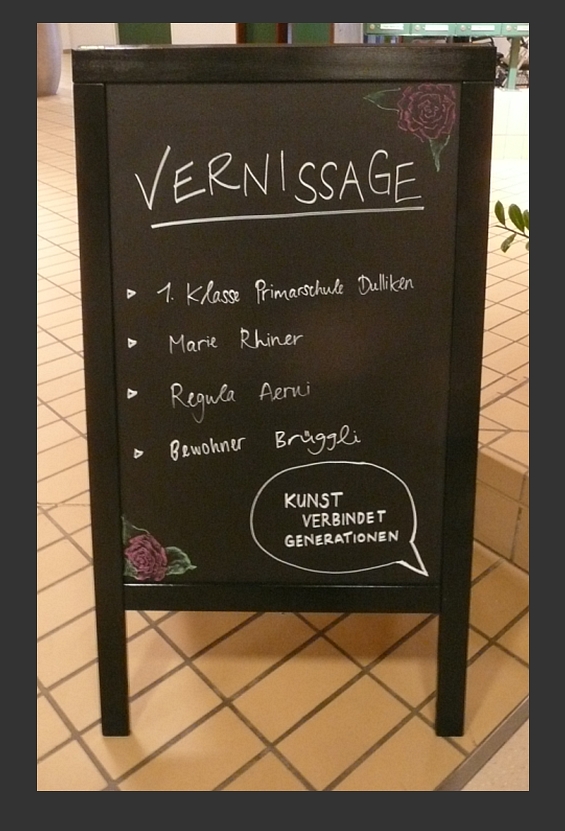 VERNISSAGE
1. Klasse Primarschule Dulliken
Marie Rhiner
Regula Aerni
Bewohner Brüggli
KUNST
VERBINDET
GENERATIONEN